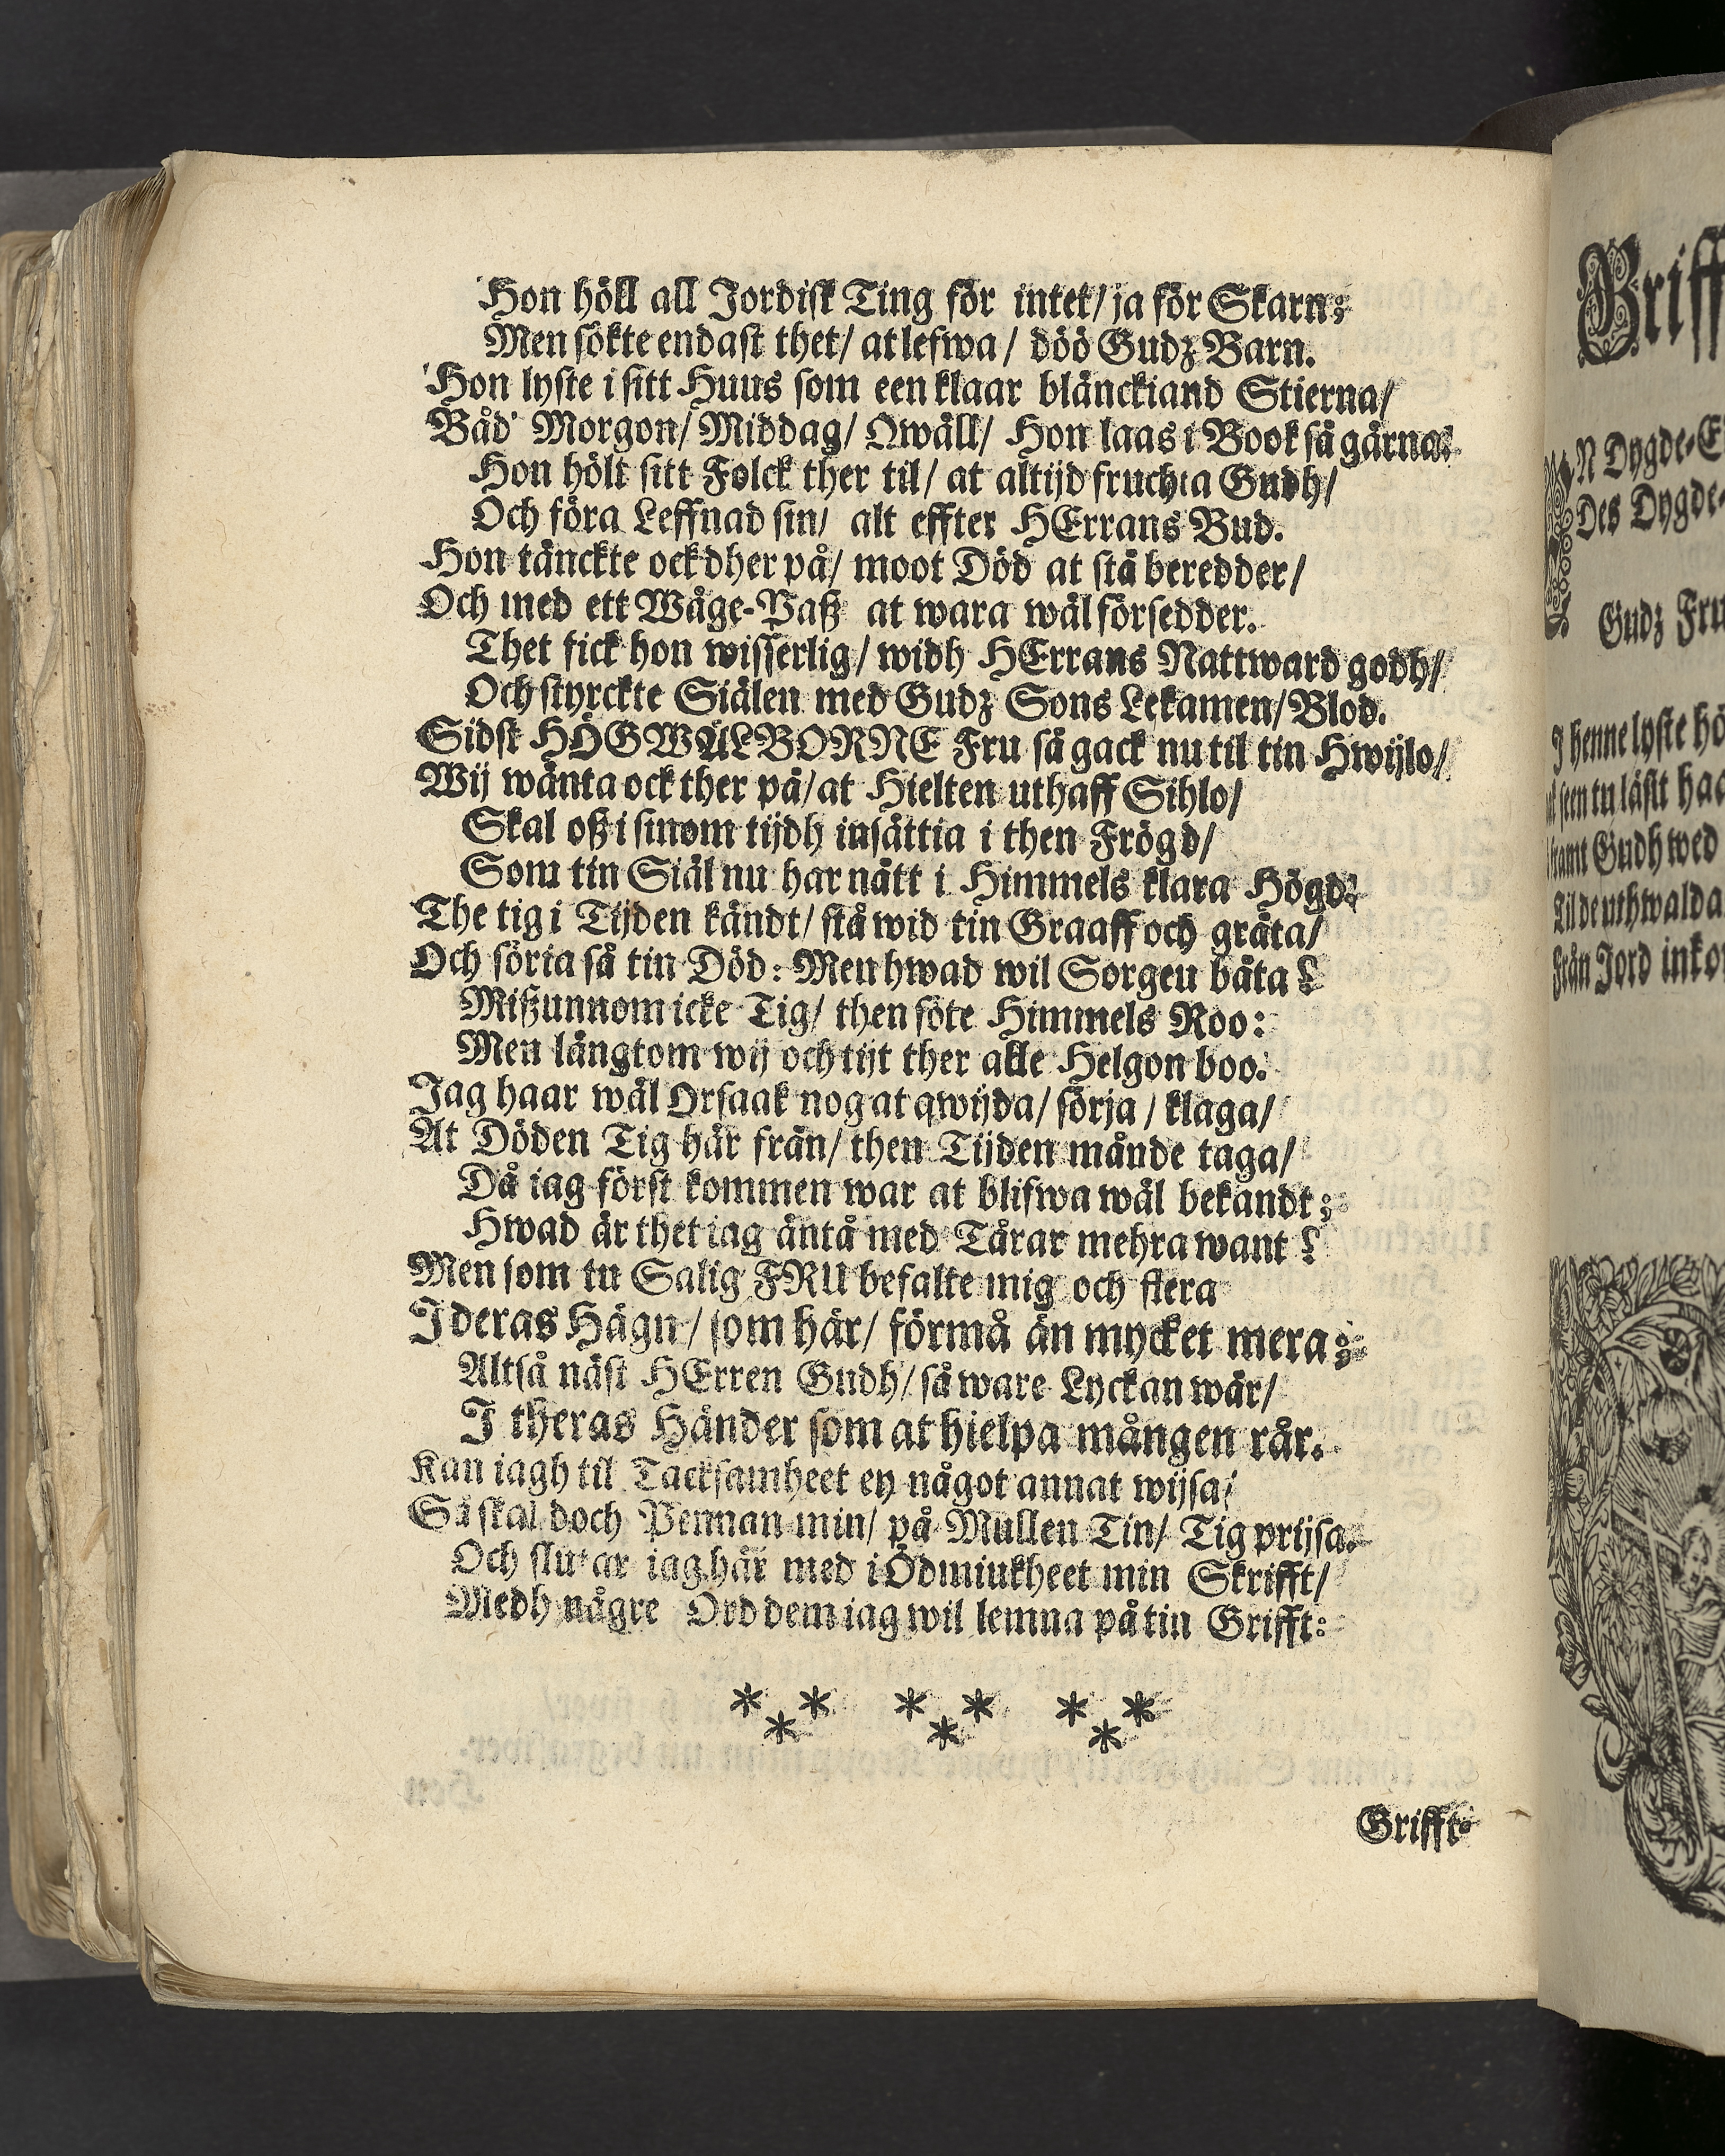 Hon höll all Jordisk Ting för intet/ ja för Skarn;
Men sökte endast thet/ at lefwa/ döö Gudz Barn.
Hon lyste i sitt Huus som een klaar blänckiand Stierna/
Båd' Morgon/ Middag/ Qwäll/ Hon laas i Book så gärna.
Hon hölt sitt Folck ther til/ at altijd fruchta Gudh/
Och föra Leffnad sin/ alt effter HErrans Bud.
Hon tänckte ock dher på/ moot Död at stå beredder/
Och med ett Wäge-Paß at wara wäl försedder.
Thet fick hon wisserlig/ widh HErrans Nattward godh/
Och styrckte Siälen med Gudz Sons Lekamen/ Blod.
Sidst HÖGWÄLBORNE Fru så gack nu til tin Hwijlo/
Wij wänta ock ther på/ at Hielten uthaff Sihlo/
Skal oß i sinom tijdh insättia i then Frögd/
Som tin Siäl nu har nått i Himmels klara Högd.
The tig i Tijden kändt/ stå wid tin Graaff och gråta/
Och söria så tin Död: Men hwad wil Sorgen båta?
Mißunnom icke Tig/ then söte Himmels Roo:
Men längtom wij och tijt ther alle Helgon boo.
Jag haar wäl Orsaak nog at qwijda/ sörja/ klaga/
At Döden Tig här från/ then Tijden månde taga/
Då iag först kommen war at blifwa wäl bekandt;
Hwad är thet iag äntå med Tårar mehra want?
Men som tu Salig FRU befalte mig och flera
I deras Hägn/ som här/ förmå än mycket mera;
Altså näst HErren Gudh/ så ware Lyckan wår/
I theras Händer som at hielpa mången rår.
Kan iagh til Tacksamheet ey något annat wijsa/
Så skal doch Pennan min/ på Mullen Tin/ Tig prijsa.
Och slutar iag här med i Ödmiukheet min Skrifft/
Medh någre Ord dem iag wil lemna på tin Grifft:
* * * * * *
* * *
Grifft-
Griff
N Dygde-E
Des Dygde-
Gudz Fru
J henne lyste hö
seen tu läsit haa
framt Gudh wed
Til de uthwalda
Från Jord inko